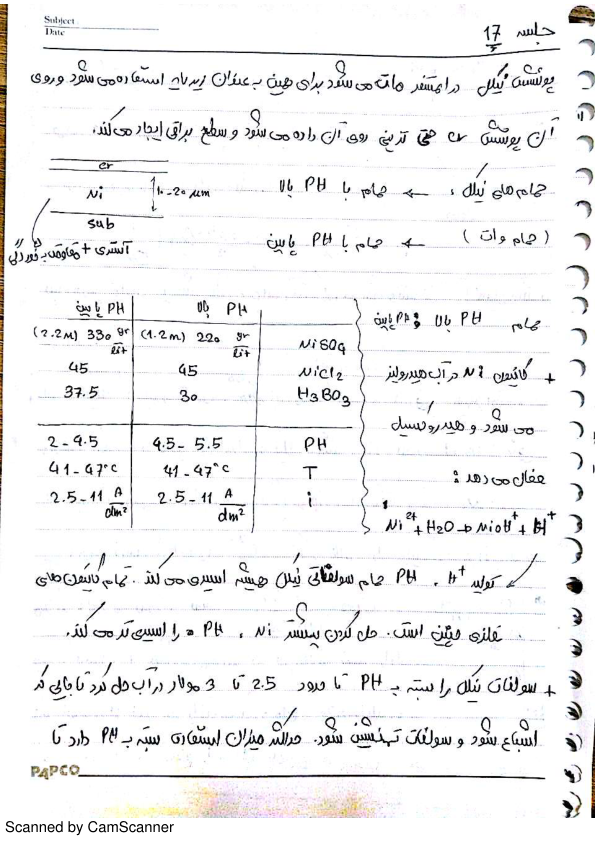 Subject
Date
جلسه 17
پوشش نیکل در اتمسفر مات می شود برای همین به عنوان زیرلایه استفاده می شود و روی
آن پوشش cr حتی تزئینی روی آن داده می شود و سطح براقی ایجاد می کند.
cr
Ni 10-20 μm
sub
آستری + مقاومت به خوردگی
حمام های نیکل: ← حمام با PH بالا
(حمام وات) ← حمام با PH پایین
PH بالا PH پایین
NiSO4 (1.2m) 220 gr/lit (2.2m) 330 gr/lit
NiCl2 45 45
H3BO3 30 37.5
PH 4.5-5.5 2-4.5
T 41-47°c 41-47°c
i 2.5-11 A/dm² 2.5-11 A/dm²
حمام PH بالا و PH پایین
+ کاتیون Ni در آب هیدرولیز
می شود و هیدروکسیل
فعال می دهد:
Ni2+ + H2O → NiOH+ + H+
تولید H+، PH حمام سولفاتی نیکل همیشه اسیدی می کند. تمام کاتیون های
فلزی چنین است. حل کردن بیشتر Ni، PH را اسیدی تر می کند.
+ سولفات نیکل را بسته به PH تا حدود 2.5 تا 3 مولار در آب حل کرد تا جایی که
اشباع شود و سولفات ته نشین شود. حداکثر میزان استفاده بسته به PH دارد تا
PAPCO
Scanned by CamScanner